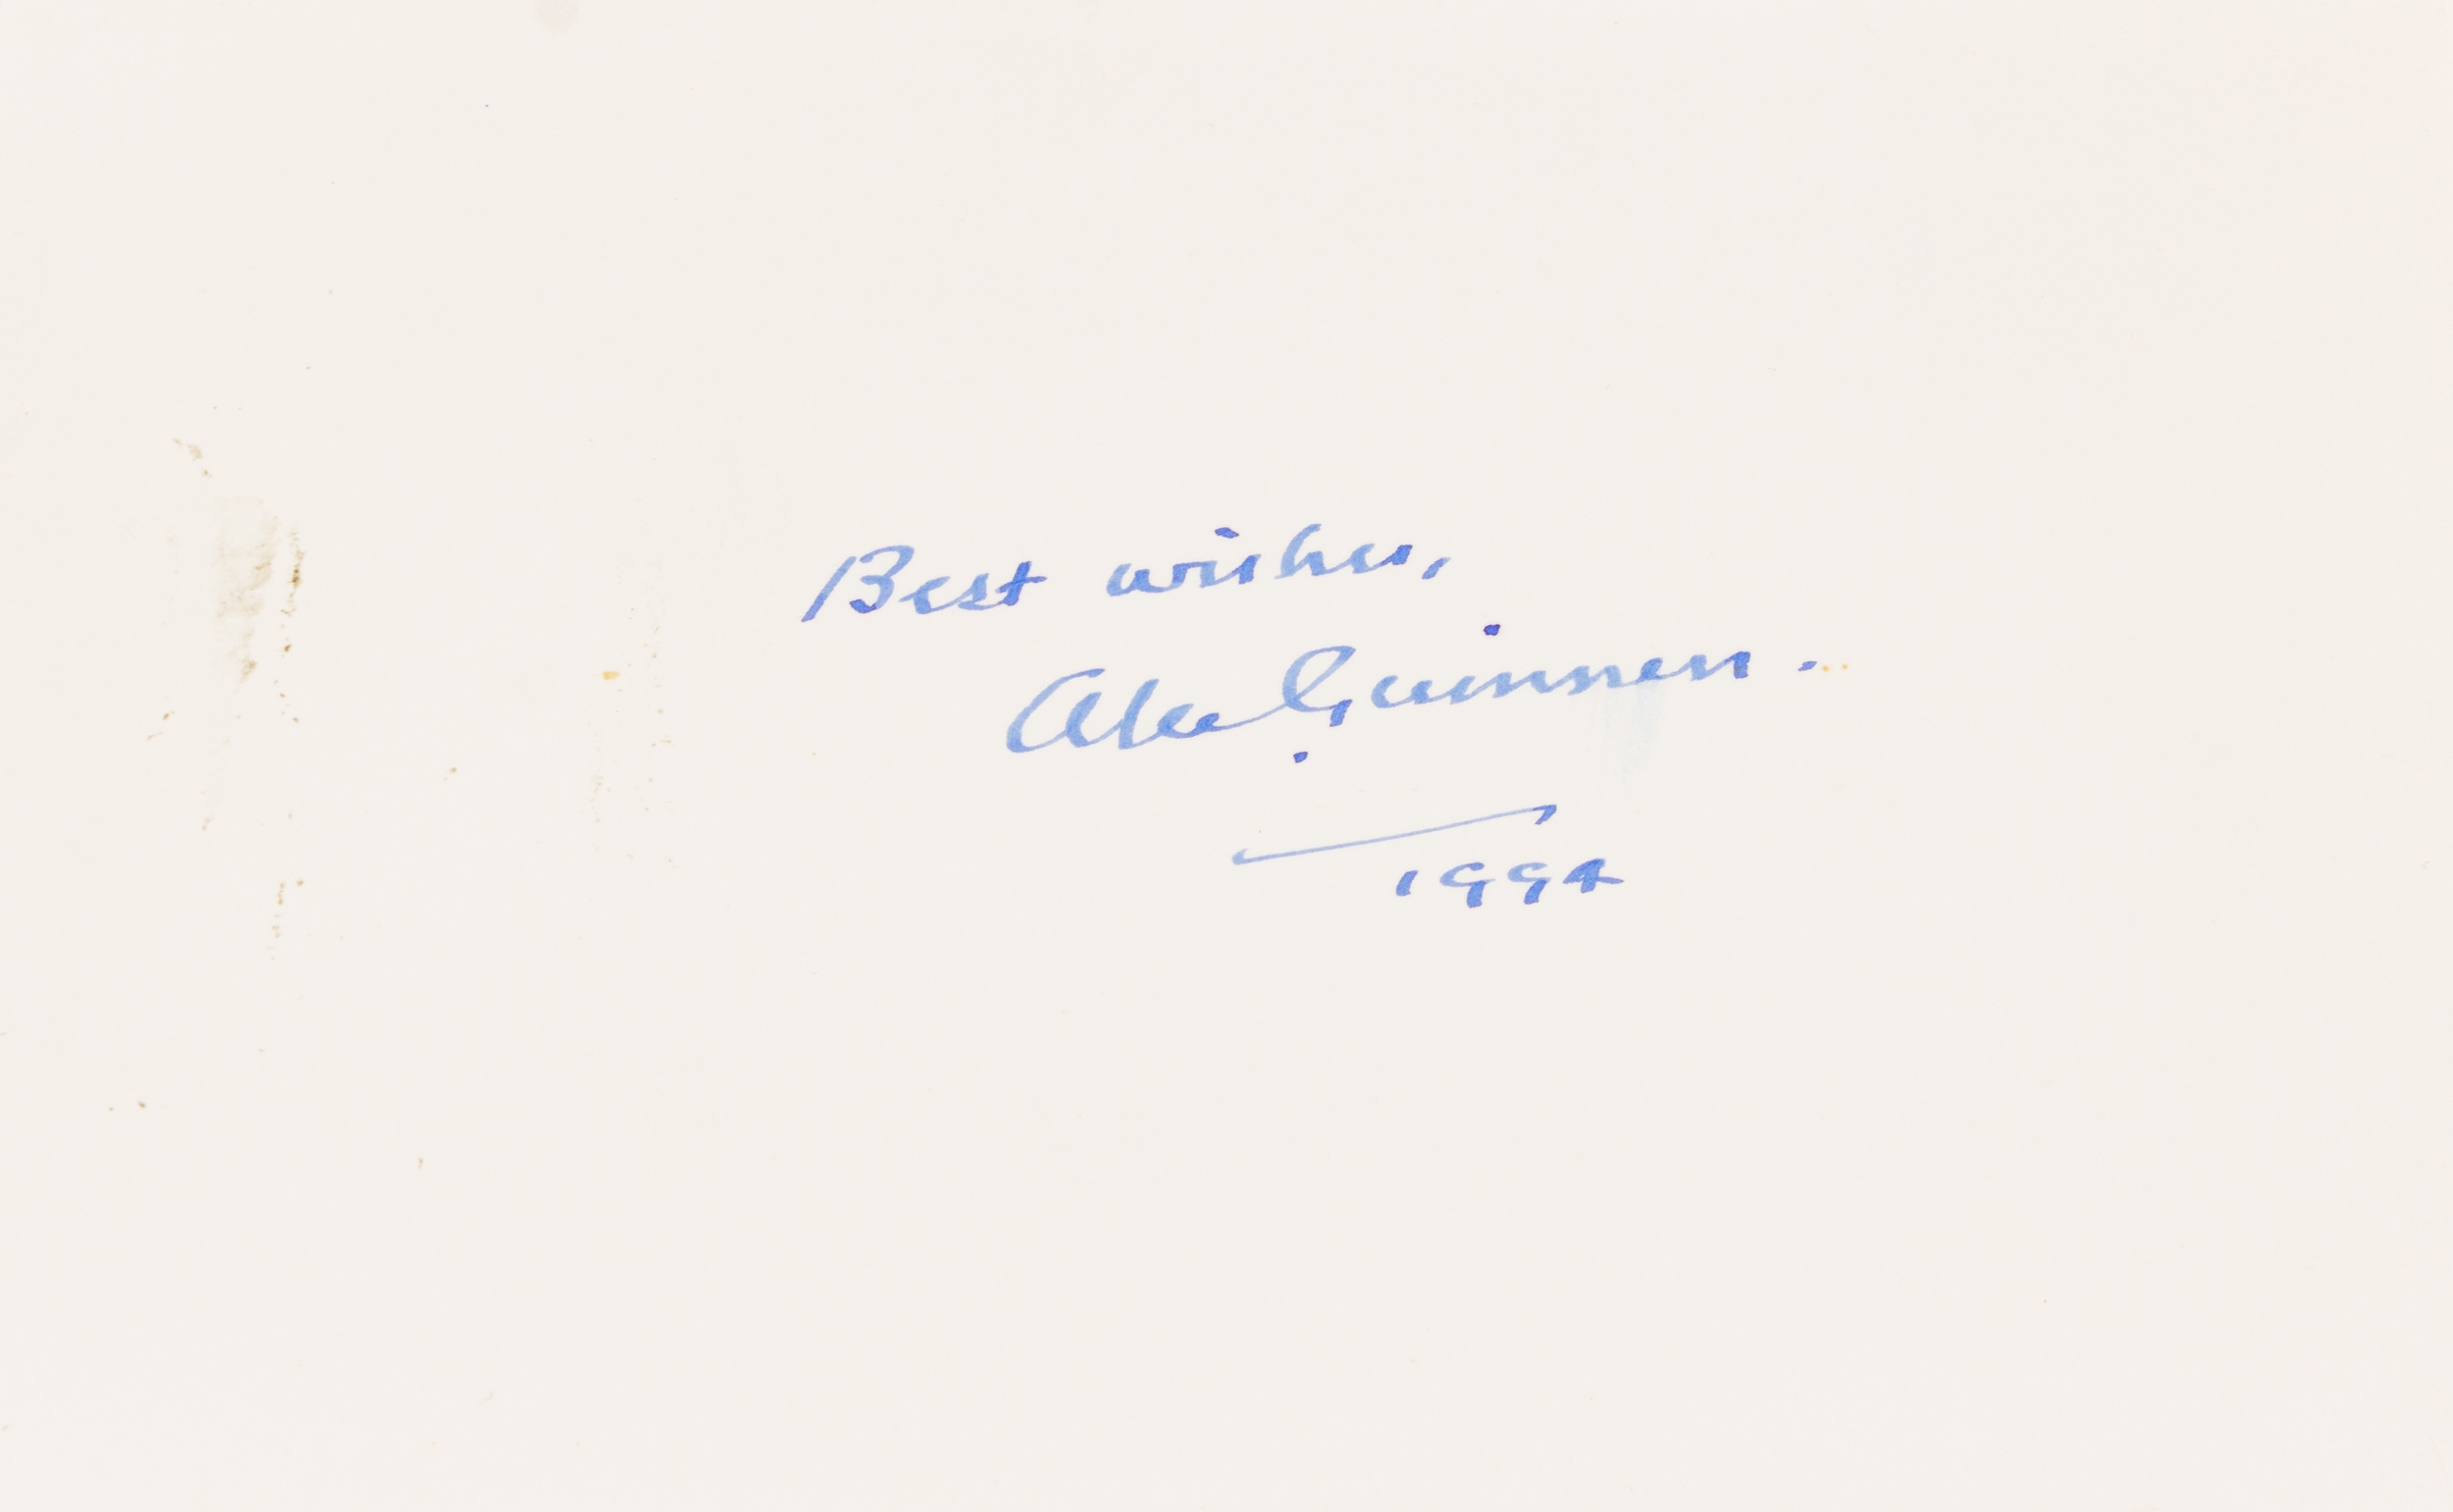 Best wishes,
Alec Guinness.
1994